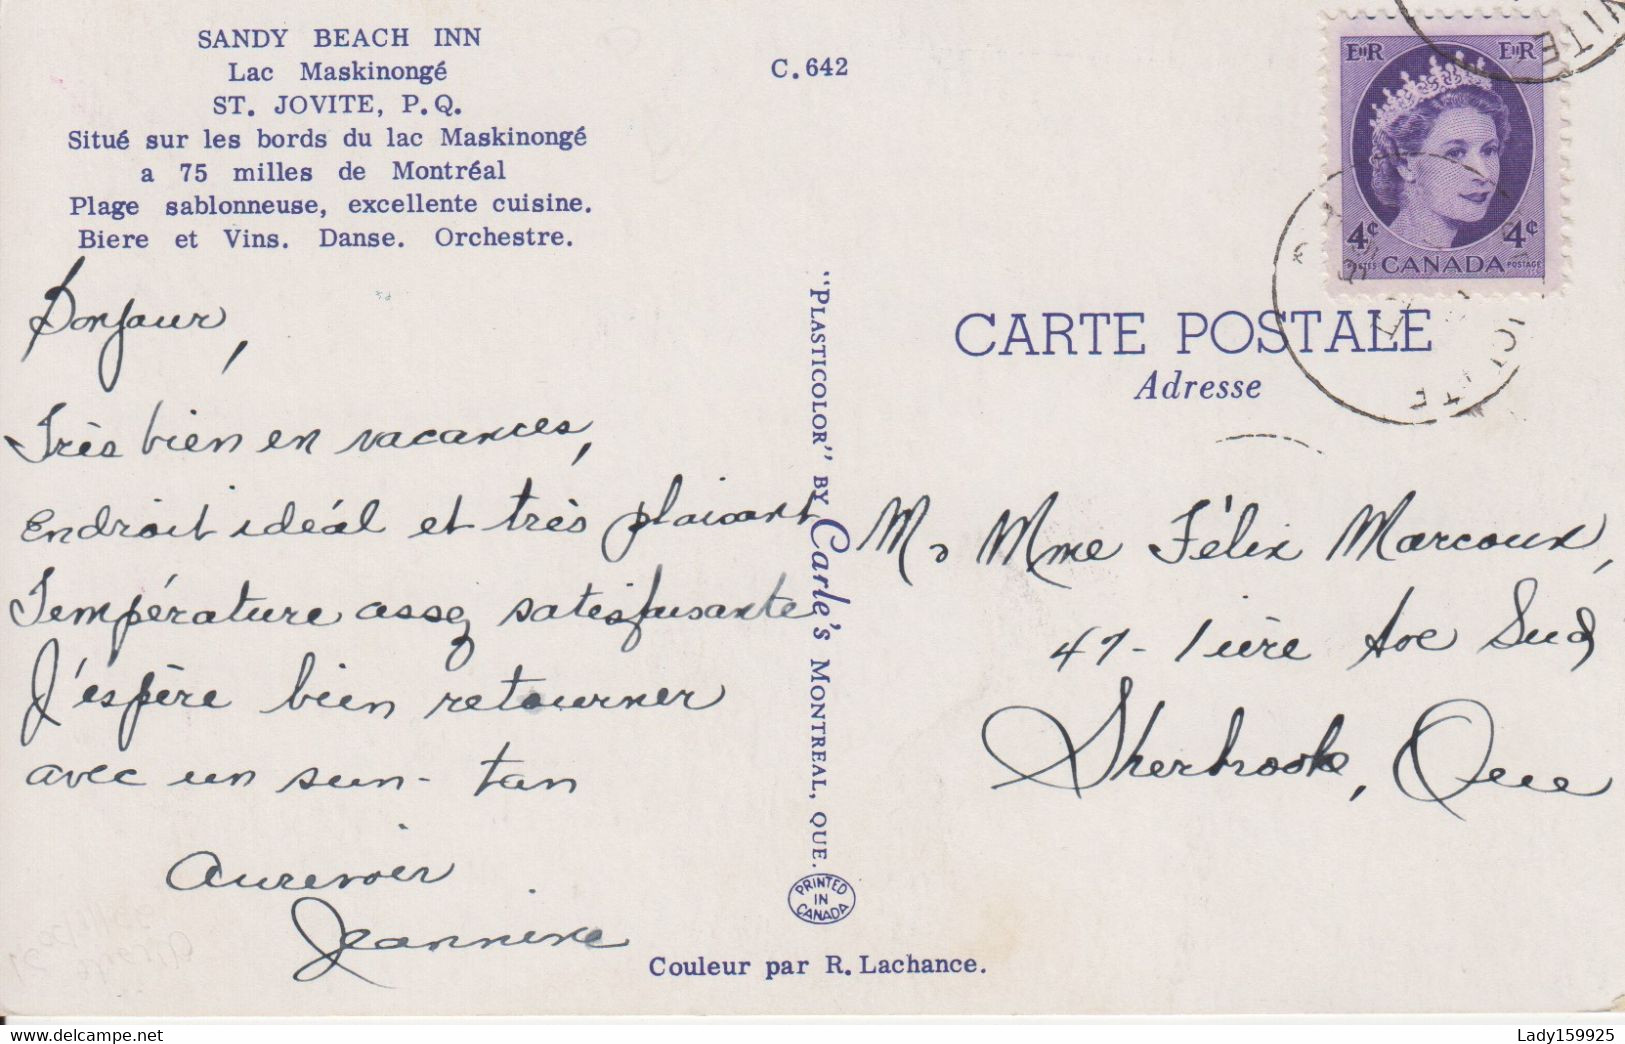 SANDY BEACH INN
Lac Maskinongé
ST. JOVITE, P.Q.
Situé sur les bords du lac Maskinongé
a 75 milles de Montréal
Plage sablonneuse, excellente cuisine.
Biere et Vins. Danse. Orchestre.
Bonjour,
Très bien en vacances,
Endroit idéal et très plaisant
Température assez satisfaisante
J'espère bien retourner
avec un sun-tan
Aurevoir
Jeannine
C. 642
"PLASTICOLOR" BY Carle's MONTREAL, QUE.
PRINTED
IN
CANADA
Couleur par R. Lachance.
EIIR EIIR
4¢ 4¢
POSTES CANADA POSTAGE
CARTE POSTALE
Adresse
M. Mme Félix Marcoux,
47 - 1ière Ave Sud
Sherbrooke, Que
www.delcampe.net
Lady159925